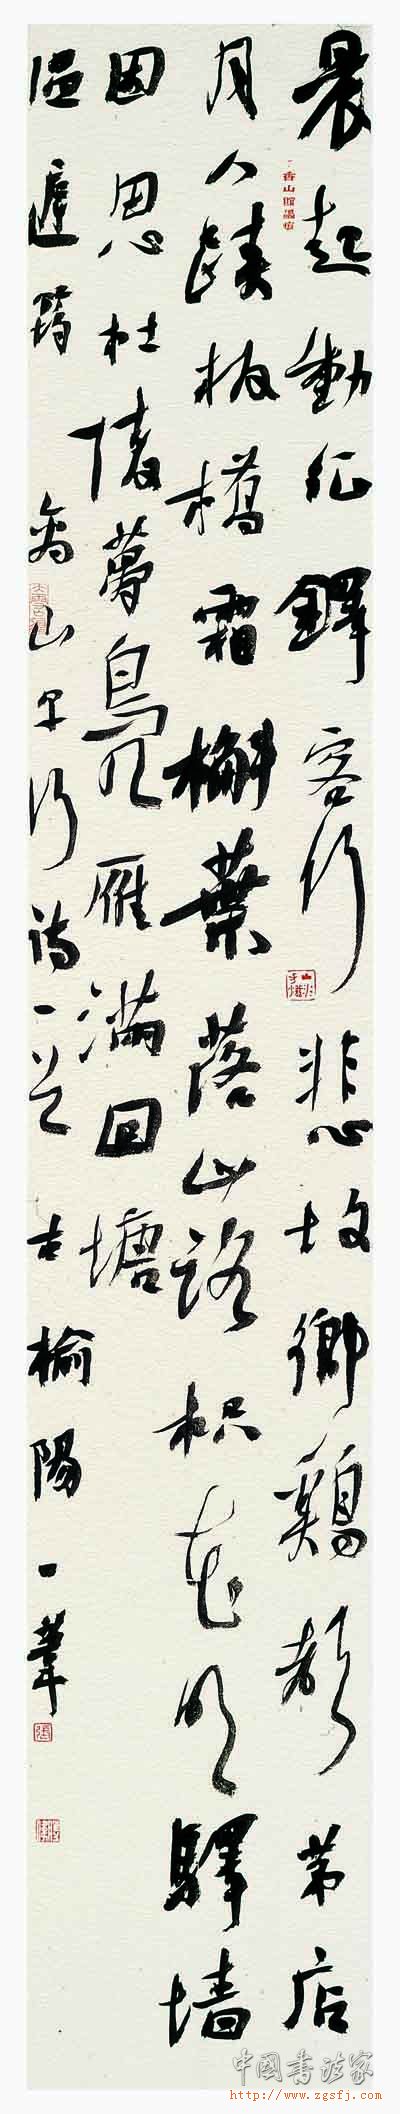 晨起動征鐸客行悲故鄉鷄聲茅店
月人蹟板橋霜槲葉落山路枳花明驛墙
因思杜陵夢鳧雁滿回塘
温庭筠商山早行诗一首古榆陽一葦
中國書法家
http://www.zgsfj.com